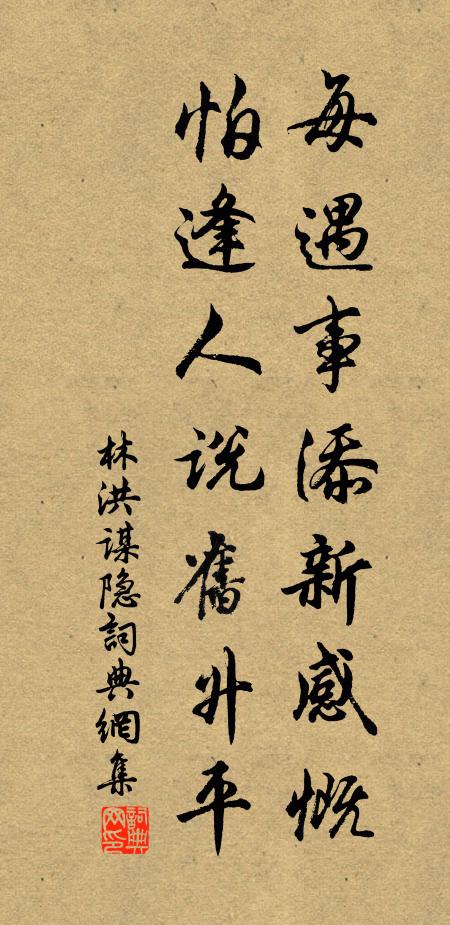 每遇事添新感慨
怕逢人说旧升平
林洪谋隐詞典網集
詞典网印